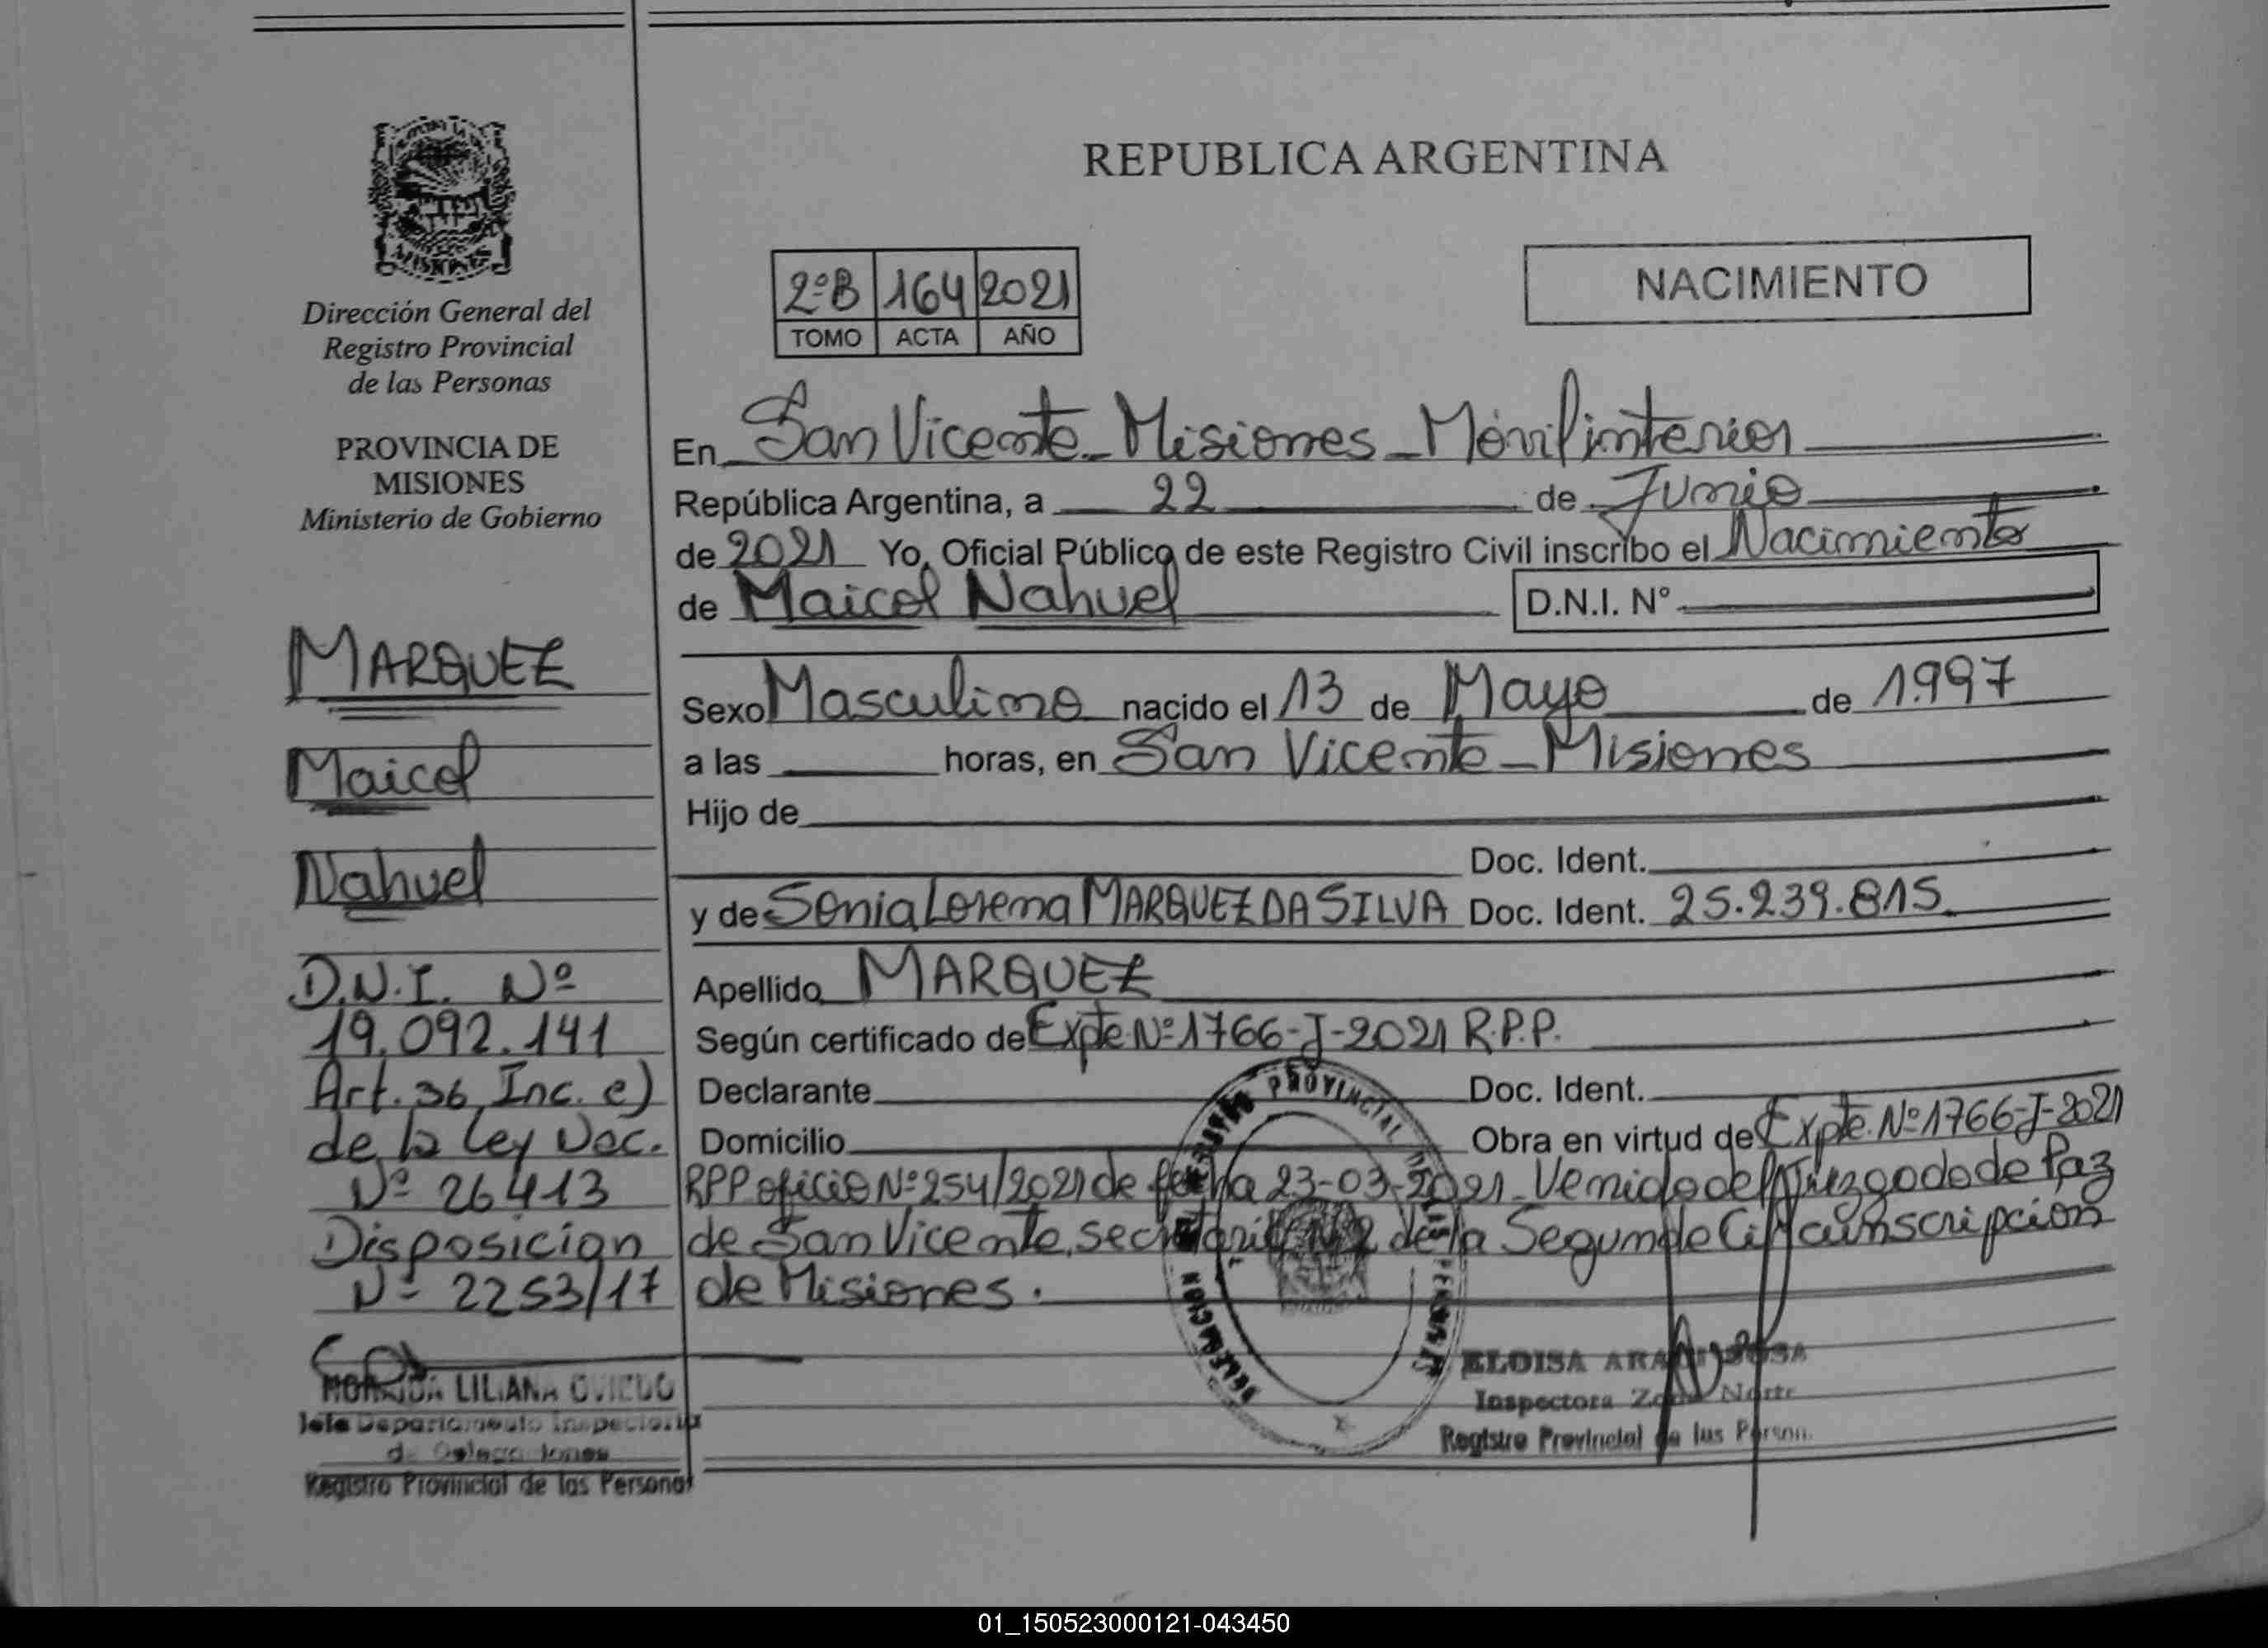 REPUBLICA ARGENTINA
NACIMIENTO
2ºB 164 2021
TOMO ACTA AÑO
Dirección General del
Registro Provincial
de las Personas
PROVINCIA DE
MISIONES
Ministerio de Gobierno
MARQUEZ
Maicol
Nahuel
D.N.I. Nº
19.092.141
Art. 36 Inc. e)
de la Ley Nac.
Nº 26413
Disposicion
Nº 2253/17
LILIANA OVIEDO
Jefe Departamento Inspectoria
de Delegaciones
Registro Provincial de las Personas
En San Vicente - Misiones - Móvil interior
República Argentina, a 22 de Junio
de 2021 Yo, Oficial Público de este Registro Civil inscribo el Nacimiento
de Maicol Nahuel D.N.I. Nº
Sexo Masculino nacido el 13 de Mayo de 1997
a las horas, en San Vicente - Misiones
Hijo de
Doc. Ident.
y de Sonia Lorena MARQUEZ DA SILVA Doc. Ident. 25.239.815
Apellido MARQUEZ
Según certificado de Expte Nº 1766-J-2021 R.P.P.
Declarante Doc. Ident.
Domicilio Obra en virtud de Expte. Nº 1766-J-2021
RPP oficio Nº 254/2021 de fecha 23-03-2021. Venido del Juzgado de Paz
de San Vicente, secretaria Nº 2 de la Segunda Circunscripcion
de Misiones.
PROVINCIAL
ELOISA
Inspectora Zona Norte
Registro Provincial de las Person.
01_150523000121-043450